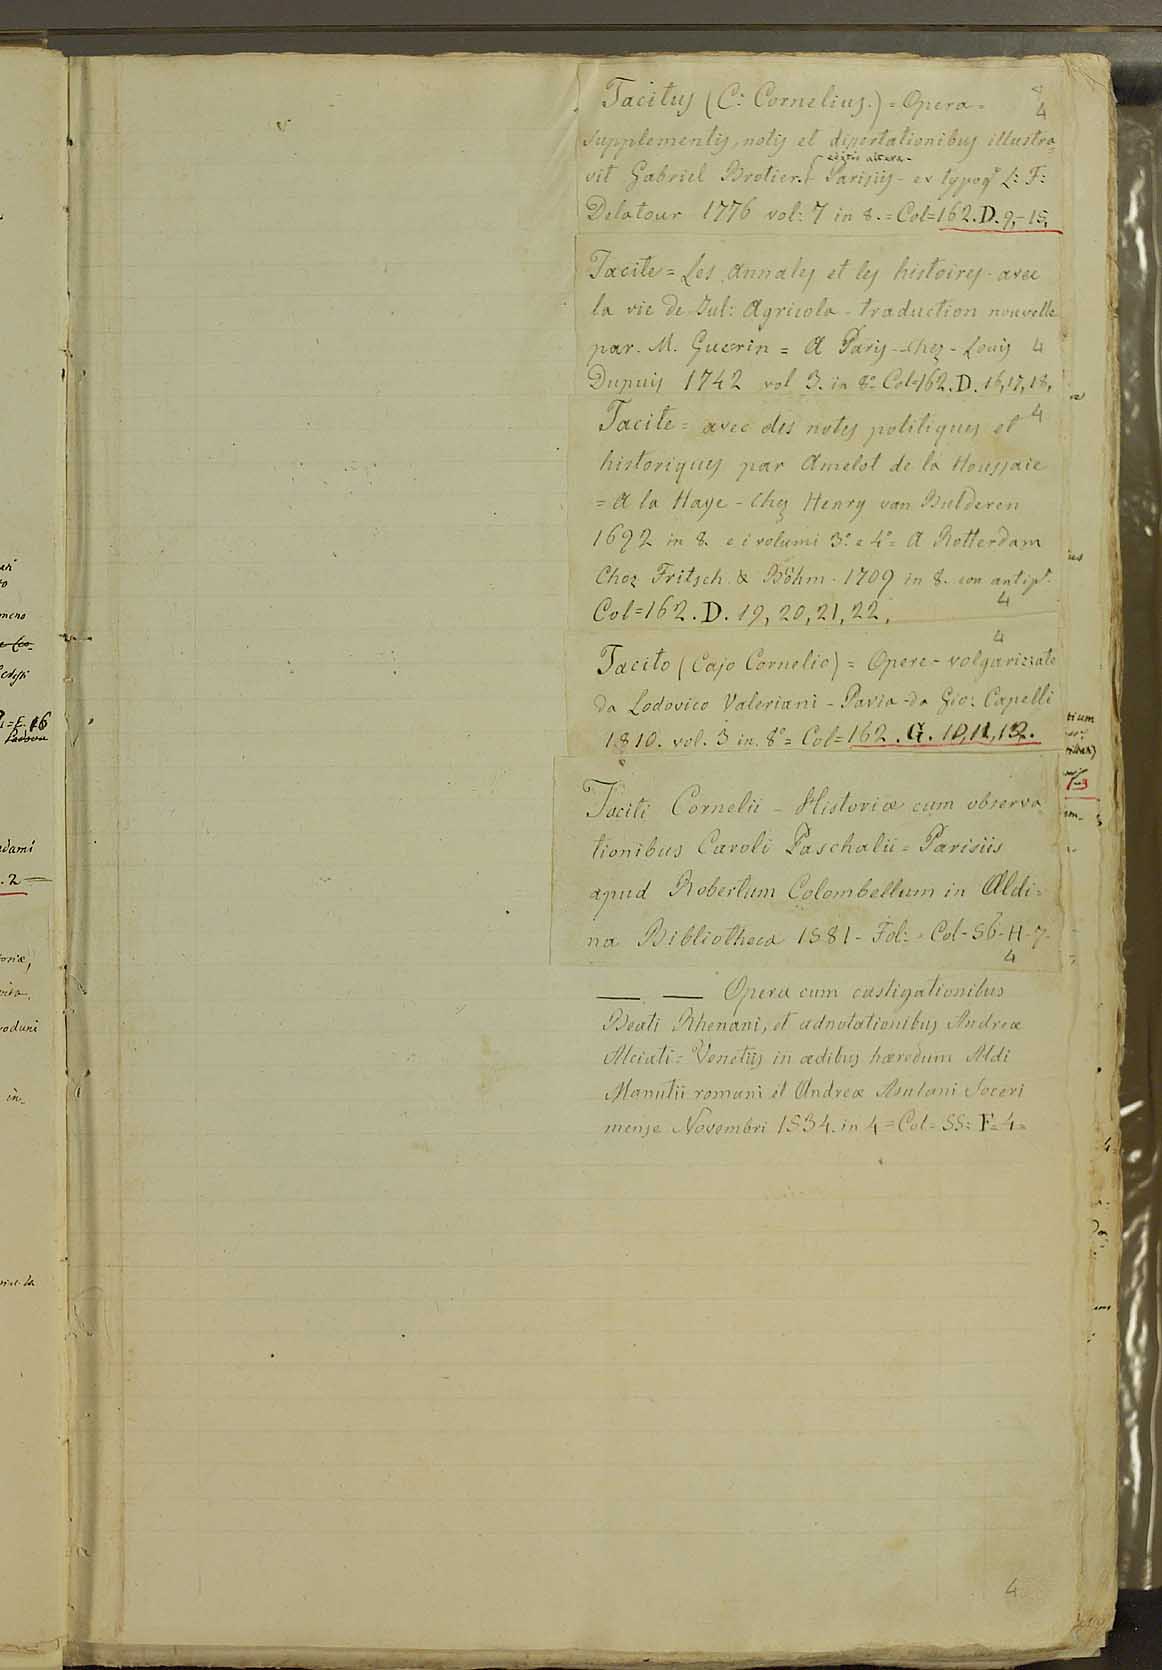 Tacitus (C: Cornelius.) = Opera =
4
supplementis, notis et dissertationibus illustra=
editio altera -
vit Gabriel Brotier. Parisiis - ex typog.ª L: F:
Delatour 1776 vol: 7 in 8. = Col = 162. D. 9, - 15,
Tacite = Les Annales et les histoires - avec
la vie de Jul: Agricola - traduction nouvelle
par - M. Guerin = A Paris - chez - Louis 4
Dupuis 1742 vol 3. in 8º Col = 162. D. 16, 17, 18,
Tacite = avec des notes politiques et 4
historiques par Amelot de la Houssaie
= A la Haye - chez Henry van Bulderen
1692 in 8. e i volumi 3º e 4º = A Rotterdam
Chez Fritsch & Böhm - 1709 in 8. con antip.ª
Col = 162. D. 19, 20, 21, 22, 4
4
Tacito (Cajo Cornelio) = Opere - volgarizzate
da Lodovico Valeriani - Pavia - da Gio: Capelli
1810. vol. 3 in 8º = Col = 162. G. 10, 11, 12.
Taciti Cornelii - Historiæ cum observa
tionibus Caroli Paschalii = Parisiis
apud Robertum Colombellum in Aldi=
na Bibliotheca 1581 - Fol: = Col - 56 - H - 7 -
4
— — Opera cum castigationibus
Beati Rhenani, et adnotationibus Andreæ
Alciati = Venetiis in ædibus hæredum Aldi
Manutii romani et Andreæ Asulani Soceri
mense Novembri 1534. in 4 = Col = 55: F = 4 =
4